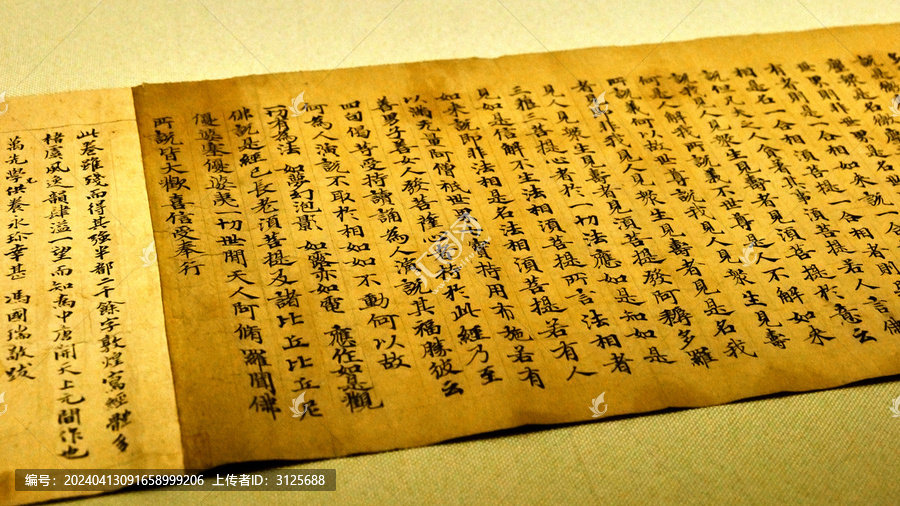 世界則非世界是名世界
有者則是一合相如來說一合相則
相是名一合相須菩提一合相者則
說但凡夫之人貪著其事須菩提若人言佛
說我見人見眾生見壽者見須菩提於意云
何是人解我所說義不世尊是人不解如來
所說義何以故世尊說我見人見眾生見壽
者見即非我見人見眾生見壽者見是名我
見人見眾生見壽者見須菩提發阿耨多羅
三藐三菩提心者於一切法應如是知如是
見如是信解不生法相須菩提所言法相者
如來說即非法相是名法相須菩提若有人
以滿無量阿僧祇世界七寶持用布施若有
善男子善女人發菩薩心者持於此經乃至
四句偈等受持讀誦為人演說其福勝彼云
何為人演說不取於相如如不動何以故
一切有為法 如夢幻泡影 如露亦如電 應作如是觀
佛說是經已長老須菩提及諸比丘比丘尼
優婆塞優婆夷一切世間天人阿脩羅聞佛
所說皆大歡喜信受奉行
此卷雖殘而得其強半都二千餘字敦煌寫經雖多
風逸韻肆溢一望而知為中唐開天上元間作也
萬先學供養永珍幸甚 馮國瑞敬跋
编号:20240413091658999206 上传者ID:3125688